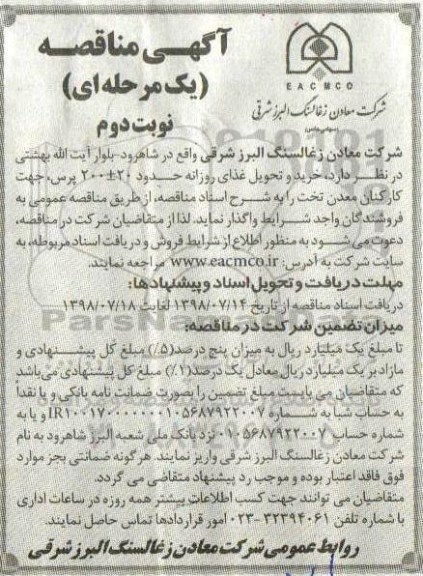 آگهی مناقصه
(یک مرحله ای)
نوبت دوم
EACMCO
شرکت معادن زغالسنگ البرز شرقی
(سهامی خاص)
شرکت معادن زغالسنگ البرز شرقی واقع در شاهرود-بلوار آیت الله بهشتی
در نظر دارد، خرید و تحویل غذای روزانه حدود ۲۰±۲۰۰ پرس، جهت
کارکنان معدن تخت را به شرح اسناد مناقصه، از طریق مناقصه عمومی به
فروشندگان واجد شرایط واگذار نماید. لذا از متقاضیان شرکت در مناقصه،
دعوت می شود به منظور اطلاع از شرایط فروش و دریافت اسناد مربوطه، به
سایت شرکت به آدرس: www.eacmco.ir مراجعه نمایند.
مهلت دریافت و تحویل اسناد و پیشنهادها:
دریافت اسناد مناقصه از تاریخ ۱۳۹۸/۰۷/۱۴ لغایت ۱۳۹۸/۰۷/۱۸
میزان تضمین شرکت در مناقصه:
تا مبلغ یک میلیارد ریال به میزان پنج درصد(۵٪) مبلغ کل پیشنهادی و
مازاد بر یک میلیارد ریال معادل یک درصد(۱٪) مبلغ کل پیشنهادی می باشد
که متقاضیان می بایست مبلغ تضمین را بصورت ضمانت نامه بانکی و یا نقداً
به حساب شبا به شماره و یا به
شماره حساب ۰۱۰۵۶۸۷۹۲۲۰۰۷ نزد بانک ملی شعبه البرز شاهرود به نام
شرکت معادن زغالسنگ البرز شرقی واریز نمایند. هرگونه ضمانتی بجز موارد
فوق فاقد اعتبار بوده و موجب رد پیشنهاد متقاضی می گردد.
متقاضیان می توانند جهت کسب اطلاعات بیشتر همه روزه در ساعات اداری
با شماره تلفن ۳۲۳۹۴۰۶۱-۰۲۳ امور قراردادها تماس حاصل نمایند.
روابط عمومی شرکت معادن زغالسنگ البرز شرقی